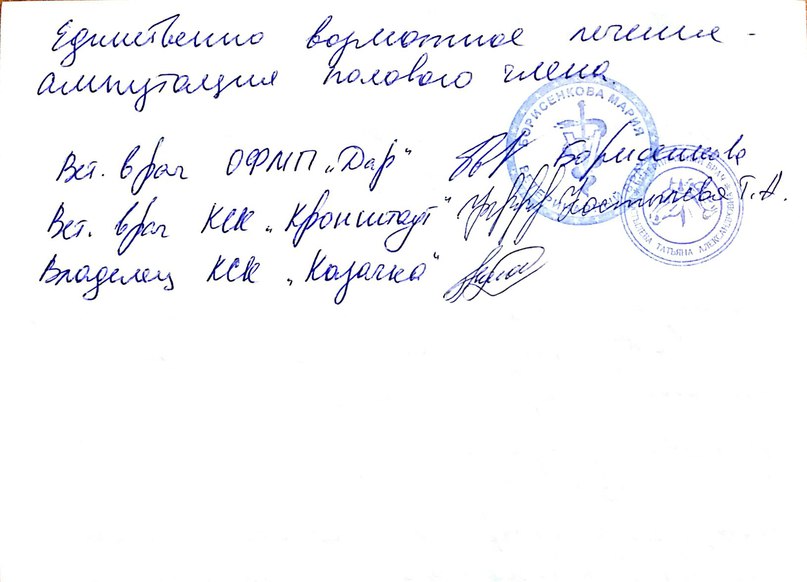 Единственно возможное лечение -
ампутация полового члена.
БОРИСЕНКОВА МАРИЯ
Вет. врач ОФМП „Дар" Борисенкова
Вет. врач КСК „Кронштадт" Костылева Т. А.
ТАТЬЯНА АЛЕКСАНДРОВНА
Владелец КСК „Казачка"